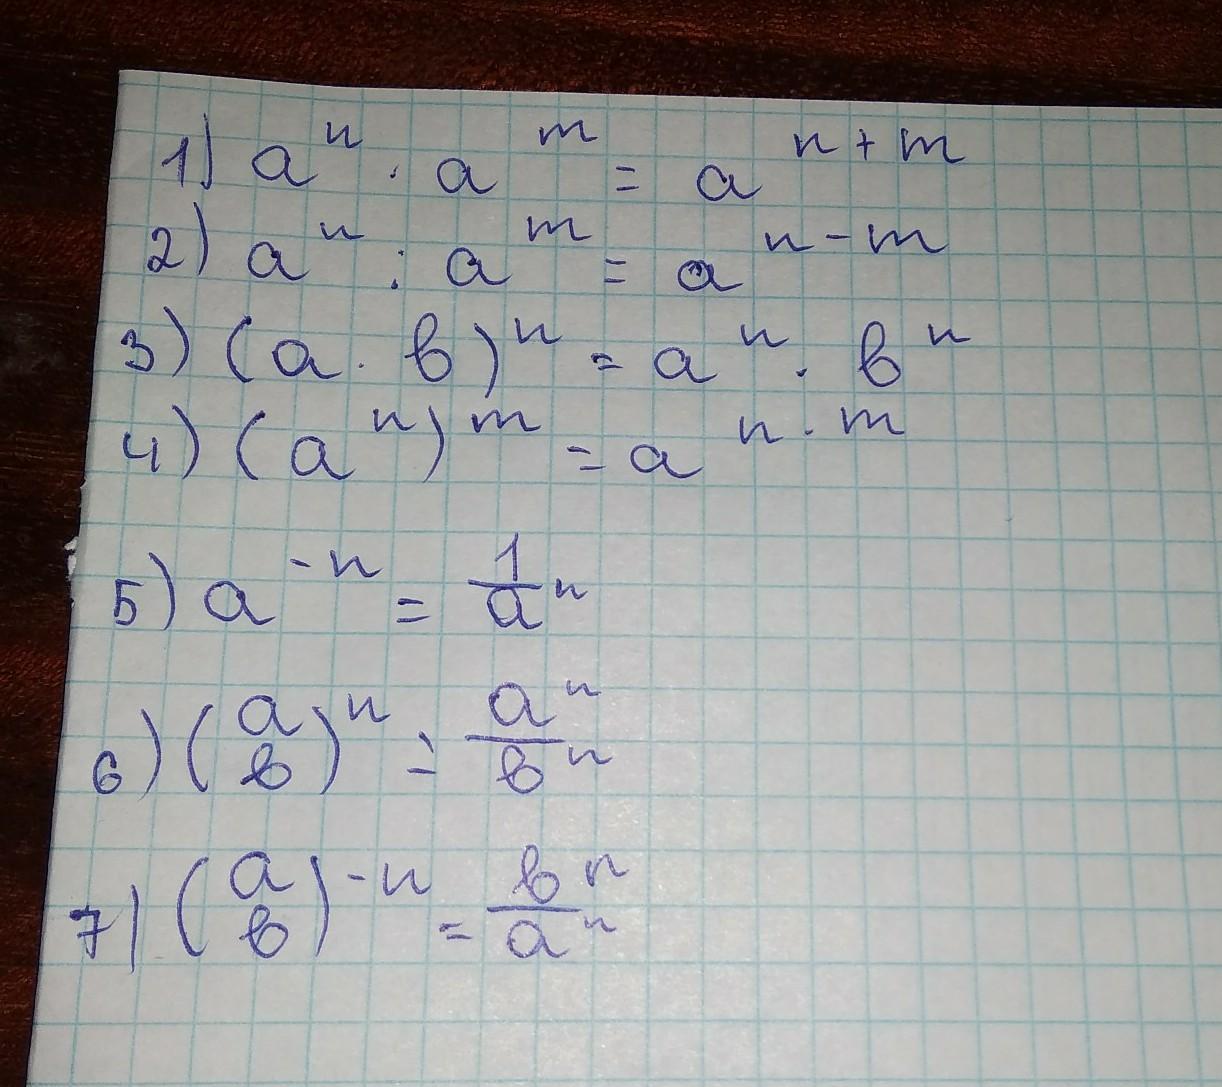 1) aⁿ · aᵐ = aⁿ⁺ᵐ
2) aⁿ : aᵐ = aⁿ⁻ᵐ
3) (a · в)ⁿ = aⁿ · вⁿ
4) (aⁿ)ᵐ = aⁿ·ᵐ
5) a⁻ⁿ = 1/aⁿ
6) (a/в)ⁿ = aⁿ/вⁿ
7) (a/в)⁻ⁿ = вⁿ/aⁿ